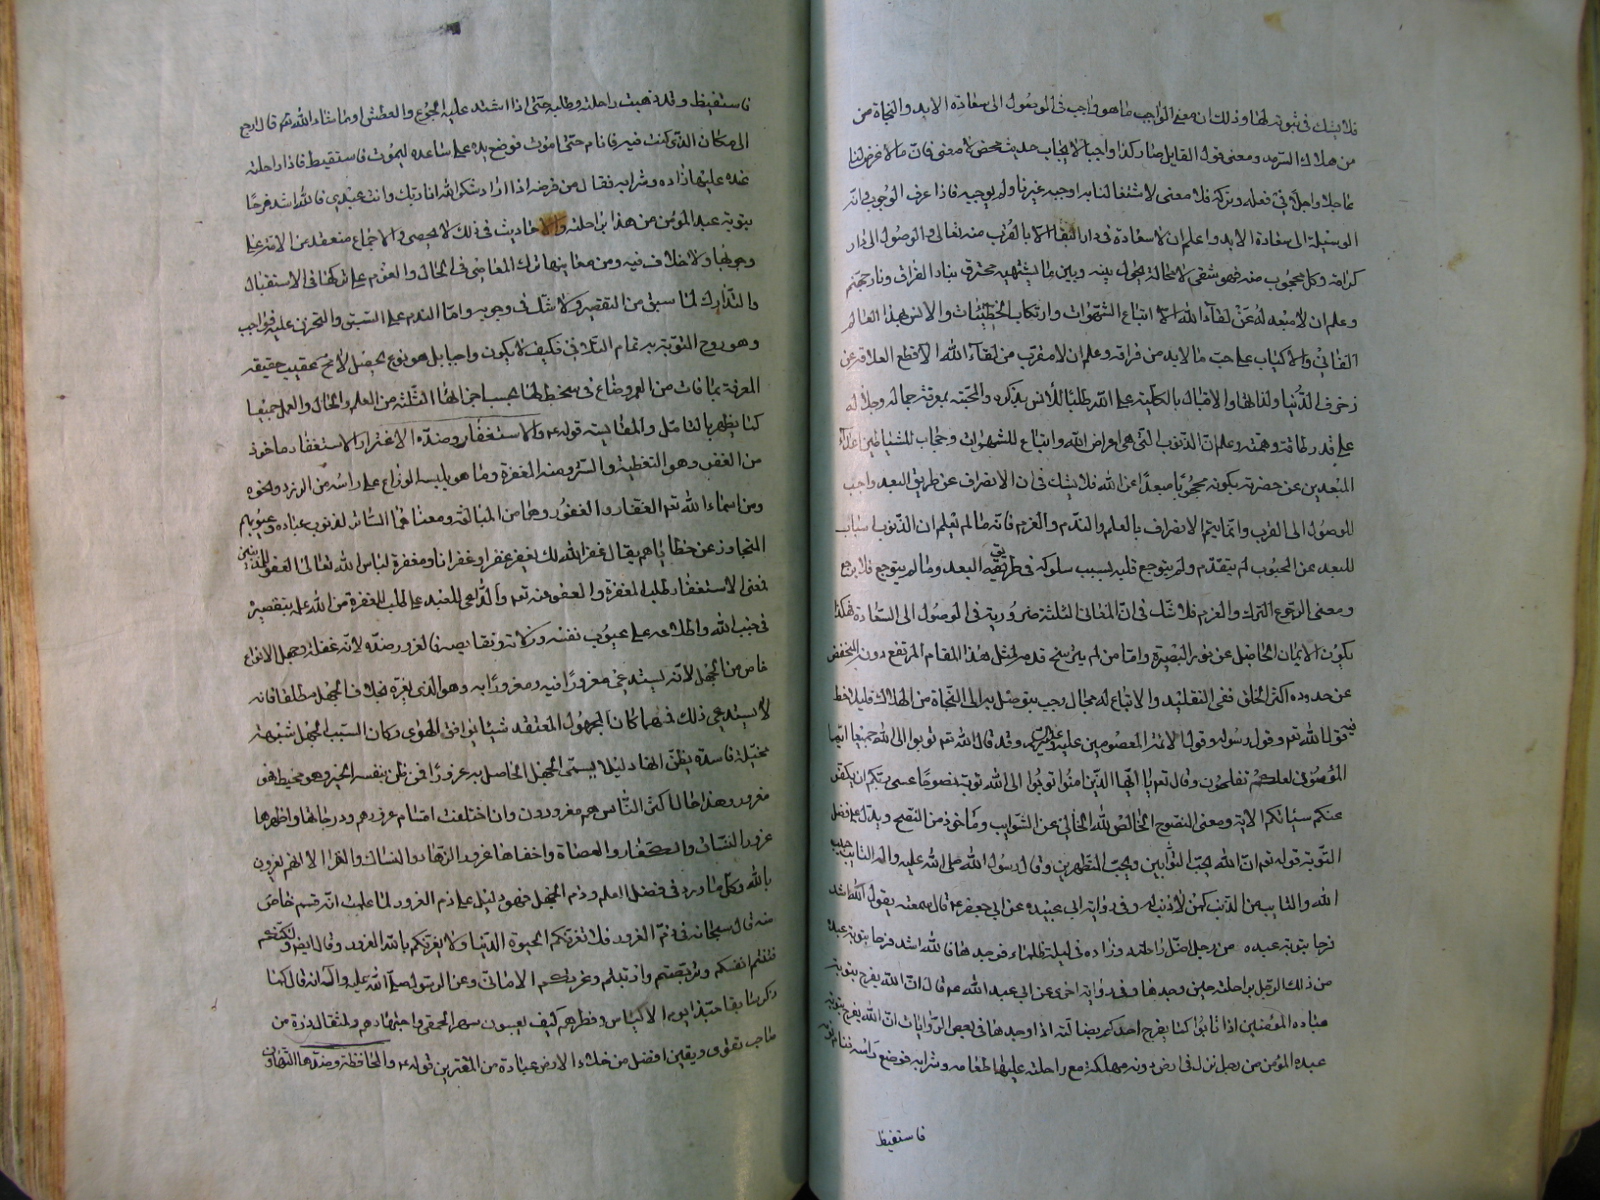 فلا يشك فى ثبوته لها وذلك ان معنى الواجب ما هو واجب فى الوصول الى سعادة الابد والنجاة من
من هلاك السرمد ومعنى قول القايل صار كذا واجبا بالايجاب حديث محض لا معنى فان ما لا غرض لنا
عاجلا واجلا فى فعله وتركه فلا معنى لاشتغالنا به اوجبه غيرنا او لم يوجبه فاذا عرف الوجوب وانه
الوسيلة الى سعادة الابد واعلم ان لا سعادة فى دار البقاء الا بالقرب منه تعالى والوصول الى دار
كرامته وكل محجوب منه فهو شقى لا محالة يحول بينه وبين ما يشتهيه محترق بنار الفراق ونار جهنم
وعلم ان لا مبعد له عن لقاء الله الا اتباع الشهوات وارتكاب الخطيئات والانس بهذا العالم
الفانى والاكباب على حب ما لا بد من فراقه وعلم ان لا مقرب من لقاء الله الا قطع العلاقه عن
زخرف الدنيا ولذاتها والاقبال بالكلية على الله طلبا للانس بذكره والمحبته بمعرفة جماله وجلاله
على قدر طاقته وهمته وعلم ان الذنوب التى هى اعراض الله واتباع للشهوات وحجاب للشياطين اعداء
المبعدين عن حضرته بكونه محجوبا مبعدا عن الله فلا يشك فى ان الانصراف عن طريق البعد واجب
للوصول الى القرب وانما يتم الانصراف بالعلم والندم والعزم فانه ما لم يعلم ان الذنوب اسباب
للبعد عن المحبوب لم يتندم ولم يتوجع قلبه بسبب سلوكه فى طريق البعد وما لم يتوجع فلا يرجع
ومعنى الرجوع الترك والعزم فلا شك فى ان المعانى الثلثة ضرورية فى الوصول الى السعادة فهكذا
يكون الايمان الحاصل عن نور البصيرة واما من لم يترشح قدمه لمثل هذا المقام المرتفع دون المنخفض
عن حدوده اكثر الخلق ففى التقليد والاتباع له مجال رحب يتوصل به الى النجاة من الهلاك فليلاحظ
فيه قول الله تعم وقول رسوله وقول الائمة المعصومين عليهم السلام وقد قال الله تعم توبوا الى الله جميعا ايها
المؤمنون لعلكم تفلحون وقال تعم يا ايها الذين امنوا توبوا الى الله توبة نصوحا عسى ربكم ان يكفر
عنكم سيئاتكم الاية ومعنى النصوح الخالص لله الخالى عن الشوايب وماخوذ من النصح ويدل على فضل
التوبة قوله تعم ان الله يحب التوابين ويحب المتطهرين وقال رسول الله صلى الله عليه واله التايب حبيب
الله والتايب من الذنب كمن لا ذنب له وفى رواية ابى عبيده عن ابى جعفر ع قال سمعته يقول الله اشد
فرحا بتوبة عبده من رجل اضل راحلته وزاده فى ليلة ظلماء فوجدها فالله اشد فرحا بتوبة عبده
من ذلك الرجل براحلته حين وجدها وفى رواية اخرى عن ابى عبد الله ع قال ان الله يفرح بتوبة
عباده المؤمنين اذا تابوا كما يفرح احدكم بضالته اذا وجدها فى بعض الروايات ان الله يفرح بتوبة
عبده المؤمن من رجل نزل فى ارض دونه مهلكة مع راحلته عليها طعامه وشرابه فوضع راسه فنام نومة
فاستقيظ
فاستقيظ وقد ذهبت راحلته وطلبه حتى اذا اشتد عليه الجوع والعطش او ما شاء الله تعم قال ارجع
الى مكان الذى كنت فيه فانام حتى اموت فوضع يده على ساعده ليموت فاستقيظ فاذا راحلته
عنده عليها زاده وشرابه فقال من فرحه اذا اراد شكر الله انا ربك وانت عبدى فالله اشد فرحا
بتوبة عبد المؤمن من هذا براحلته والاحاديث فى ذلك لا يحصى والاجماع منعقد من الامة على
وجوبها ولا خلاف فيه ومن معانيها ترك المعاصى فى الحال والعزم على تركها فى الاستقبال
والتدارك لما سبق من التقصير ولا شك فى وجوبه واما الندم على السبق والتحزن عليه فواجب
وهو روح التوبة به تمام التلافى فكيف لا يكون واجبا بل هو نوع يحصل لا مح عقيب حقيقه
المعرفة بما فات من العمر وضاع فى سخط
كما يظهر بالتامل والمقايسة قوله ع والاستغفار وضده الاغترار والاستغفار ماخوذ
من الغفر وهو التغطية والستر ومنه المغفرة وما هو يلبسه الوزاع على راسه من الزرد ونحوه
ومن اسماء الله تعم الغفار والغفور وهما من المبالغة ومعناهما الساتر لذنوب عباده وعيوبهم
المتجاوز عن خطاياهم يقال غفر الله لك يغفر غفرا وغفرانا ومغفرة لباس الله تعالى الغفو للمذنبين
فمعنى الاستغفار طلب المغفرة والعفو منه تعم والداعى للعبد على طلب المغفرة من الله علمه بتقصيره
فى جنب الله واطلاعه على عيوب نفسه وزلاته ونقايصه فالغرور ضده لانه غفلة وجهل الانواع
خاص من الجهل لانه يستدعى مغرورا فيه ومغرورا به وهو الذى يغره بخلاف الجهل مطلقا فانه
لا يستدعى ذلك فمهما كان المجهول المعتقد شيئا يوافق الهوى وكان السبب الجهل شبهة
مخيلة فاسدة يظن انها دليلا يسمى الجهل الحاصل به غرورا فمن ظن بنفسه الخير وهو مخيط فهو
مغرور وهذا حال اكثر الناس هم مغرورون وان اختلفت اقسام غرورهم ودرجاتها واظهرها
غرور الفساق والكفار والعصاة واخفاها غرور الزهاد والنساك والقراء لانهم يغرون
بالله وكل ما ورد فى فضل العلم وذم الجهل فهو دليل على ذم الغرور لما علمت انه قسم خاص
منه قال سبحانه فى ذم الغرور فلا تغرنكم الحيوة الدنيا ولا يغرنكم بالله الغرور وقال ايضا ولكنكم
فتنتم انفسكم وتربصتم وارتبتم وغرتكم الامانى وعن الرسول صلى الله عليه واله انه قال كما
ذكر سابقا حبذا نوم الاكياس وفطرهم كيف يعيبون سهر الحمقى واجتهادهم ولمثقال ذرة من
صاحب تقوى ويقين افضل من ملاء الارض عبادة من المغترين قوله ع والمحافظة وضدها التهاون